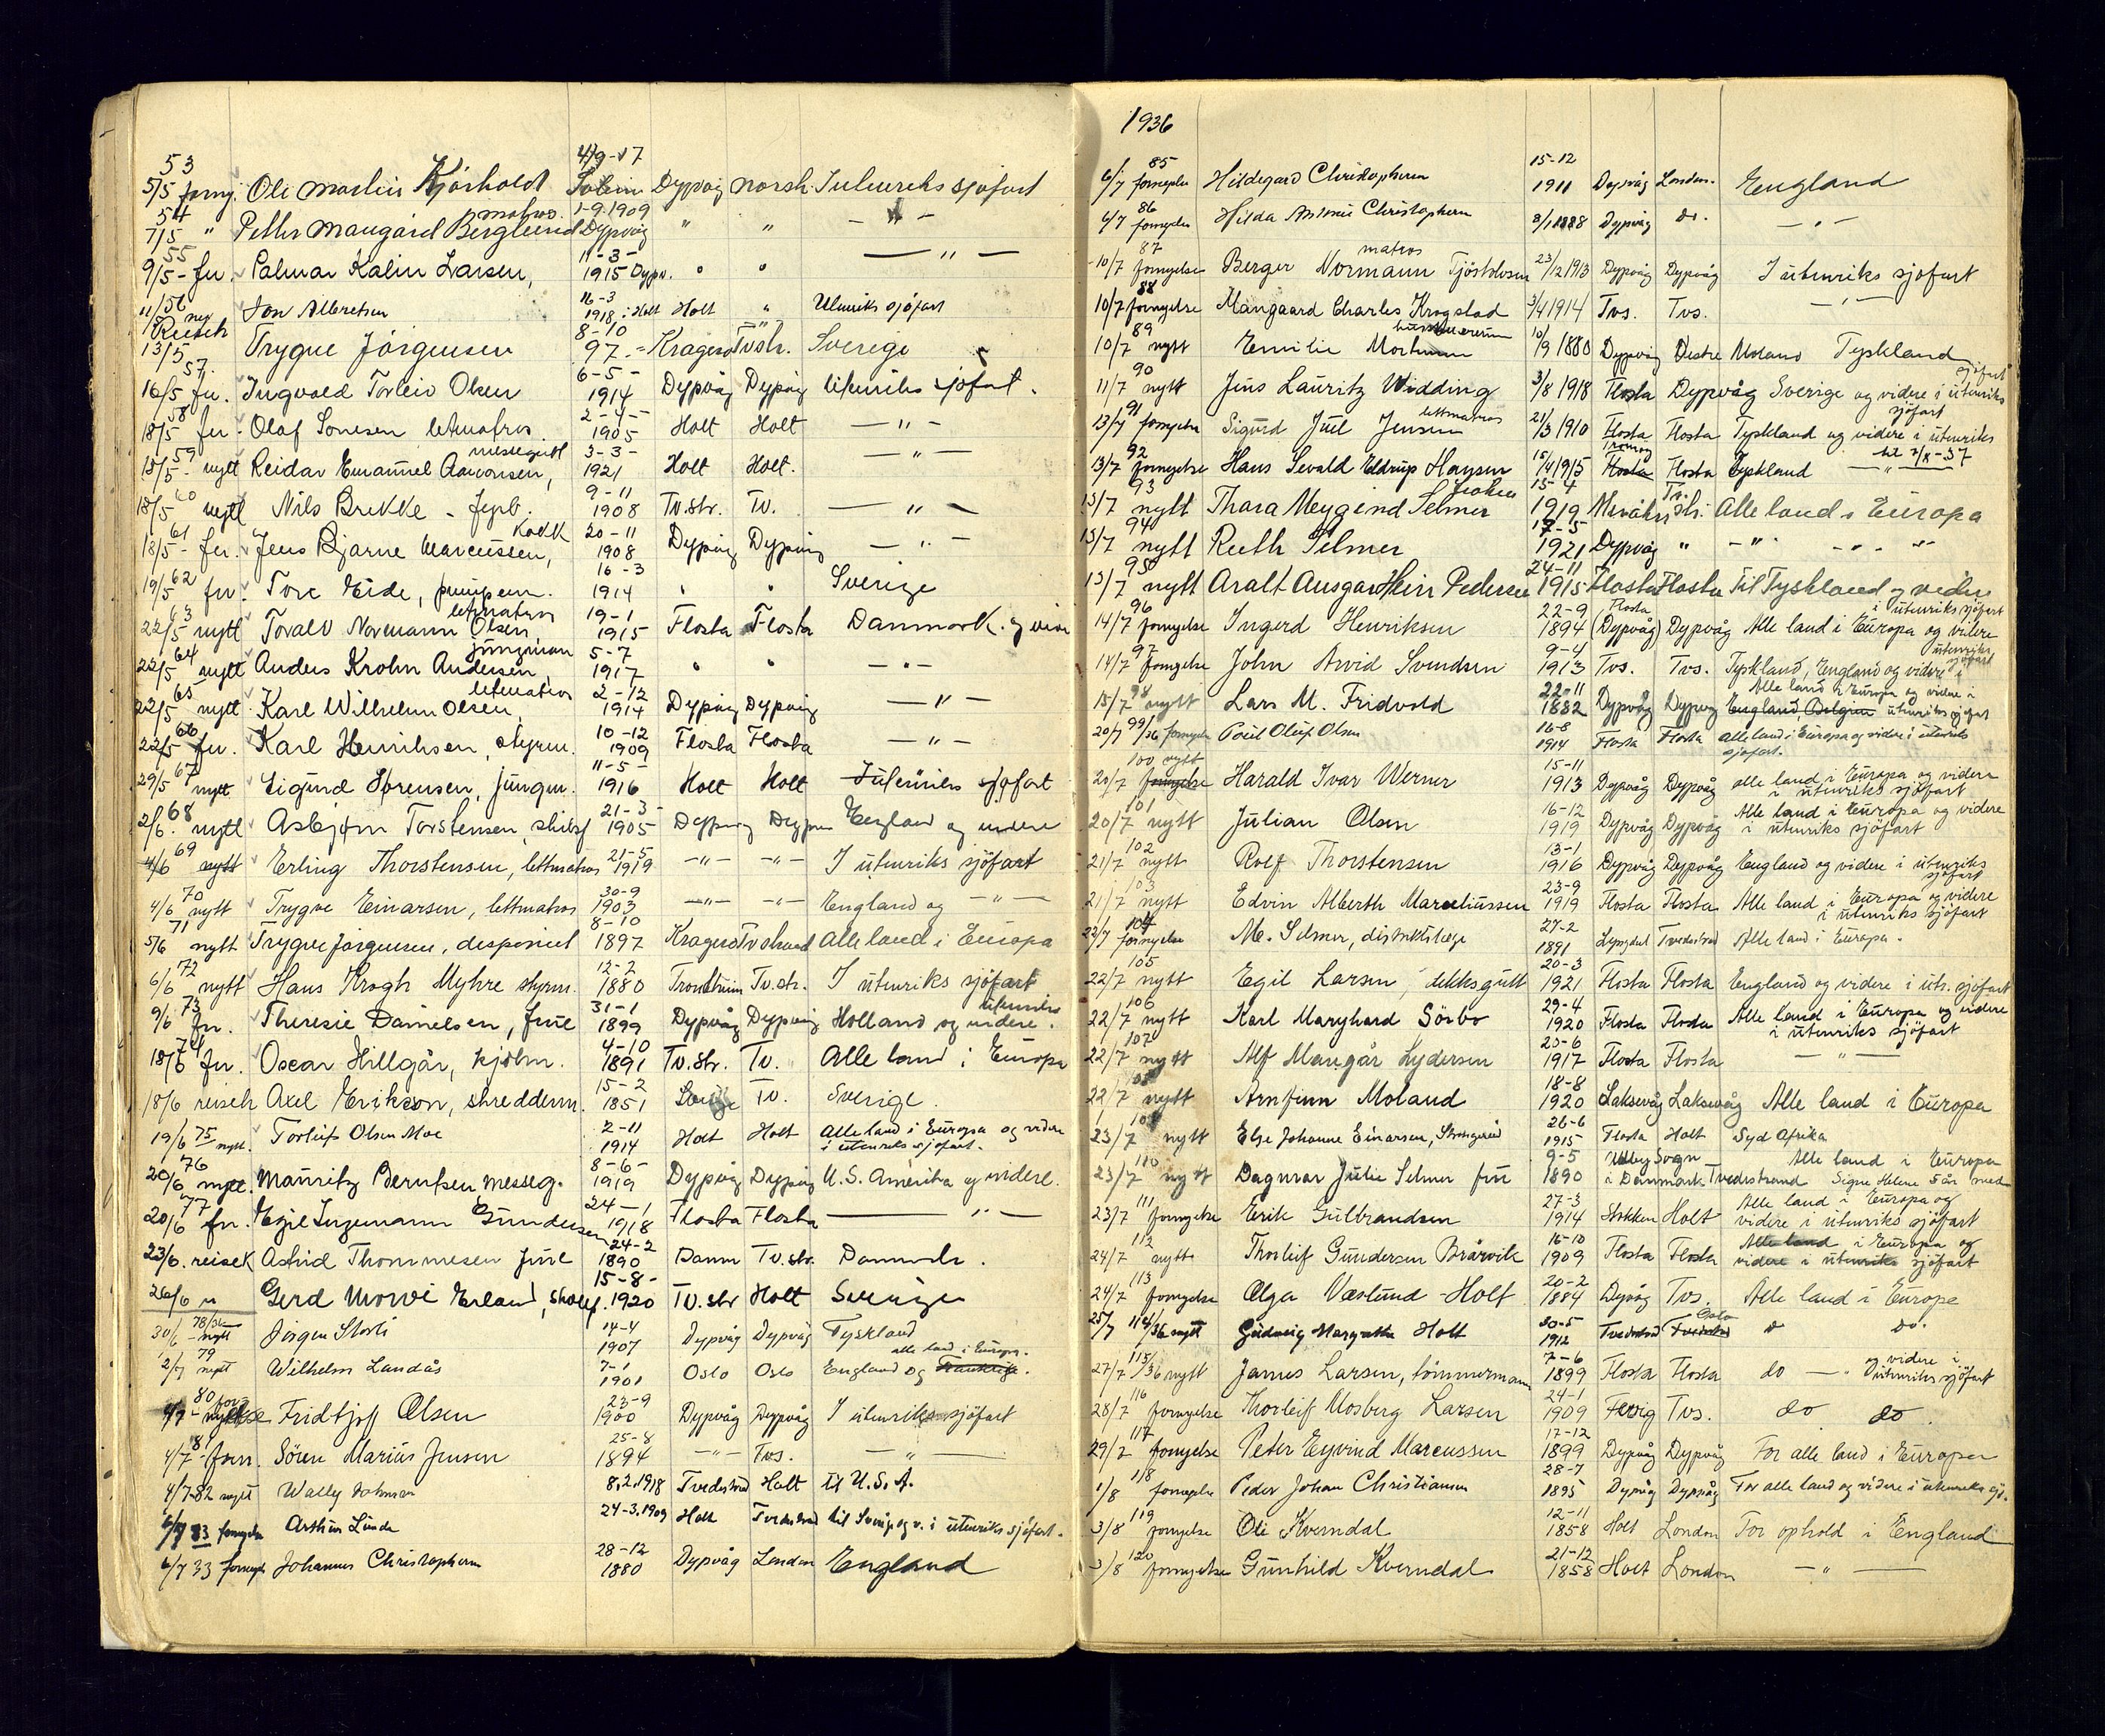 53 4/9-17
5/5 forny. Ole Martin Kjørholdt Dypvåg norsk I utenriks sjøfart
54 matros 1-9.1909
7/5 " Petter Mangård Berglund Dypvåg " " — " —
55 11-3-
9/5 - fn. Palmar Kalin Larsen, 1915 Dypv. " " — " —
11/5 56 ny Jon Albretsen 16-3 1918 i Holt Holt " Utenriks sjöfart
Reisek 8-10
13/5 Trygve Jörgensen 97. - Kragerø Tvstr. Sverige
57. 6-5-
16/5 fn. Ingvald Torleiv Olsen 1914 Dypvåg Dypvåg Utenriks sjöfart.
58 2-4-
18/5 fn. Olaf Sonesen letmatros 1905 Holt Holt — " —
59 messegutt 3-3-
18/5 - nytt Reidar Emanuel Aanonsen, 1921 Holt Holt. — " —
60 9-11
18/5 nytt Nils Brekke - fyrb. 1908 Tv.str. Tv. — " —
61 Kokk 20-11
18/5 - fn. Jens Bjarne Marcussen, 1908 Dypvåg Dypvåg — " —
62 16-3
19/5 fn. Tore Eide, pumpem. 1914 " " Sverige
63 letmatros 19-1
22/5 nytt Torald Normann Olsen, 1915 Flosta Flosta Danmark og vid
64 jungman 5-7
22/5 nytt Anders Krohn Andersen, 1917 " " — " —
65 letmatros 2-12
22/5 nytt Karl Wilhelm Olsen, 1914 Dypvåg Dypvåg — " —
66 10-12
22/5 fn. Karl Henriksen, styrm. 1909 Flosta Flosta — " —
67 11-5-
29/5 nytt Sigurd Sørensen, jungm. 1916 Holt Holt I utenriks sjøfart
68 21-3-
2/6. nytt Asbjørn Torstensen, skibsf 1905 Dypvåg Dypvåg England og videre
69 21-5
4/6 nytt Erling Thorstensen, lettmatros 1919 — " — — " — I utenriks sjöfart
70 30-9
4/6 nytt Trygve Einarsen, lettmatros 1903 — " — — " — England og — " —
71 8-10
5/6 nytt Trygve Jörgensen, disponent 1897 Kragerø Tvstrand Alle land i Europa
72 12-2
6/6 nytt Hans Krogh Myhre styrm. 1880 Trondheim Tv.str. I utenriks sjöfart
73 31-1 utenriks
9/6 fn. Theresie Danielsen, frue 1899 Dypvåg Dypvåg Holland og videre.
74 4-10
18/6 fn. Oscar Hillgår, kjölm. 1891 Tv.str. Tv. Alle land i Europa
15-2
18/6 reisek Axel Erikson, skredderm. 1851 Sverige Tv. Sverige.
19/6 75 nytt. Torleif Olsen Moe 2-11 1914 Holt Holt Alle land i Europa og videre
i utenriks sjöfart.
76 8-6-
20/6 nytt. Mauritz Berntsen messeg. 1919 Dypvåg Dypvåg U.S. Amerika og videre.
77 24-1
20/6 fn. Egil Ingemann Gundersen 1918 Flosta Flosta — " —
24-2
23/6. reisek Astrid Thommesen frue 1890 Danm Tv.str. Danmark.
15-8-
26/6 " Gerd Erland, 1920 Tv.str Holt Sverige
78/36 14-4
30/6 - nytt Jörgen Storli 1907 Dypvåg Dypvåg Tyskland
79 7-1 alle land i Europa.
2/7 nytt Wilhelm Landås 1901 Oslo Oslo England og Frankrige.
80 forn 23-9
4/7 - nyelse Fridtjof Olsen 1900 Dypvåg Dypvåg I utenriks sjöfart
81 25-8
4/7 - forn. Sören Marius Jensen 1894 — " — Tvs. — " —
4/7 82 nytt Wally Johnsen 8.2.1918 Tvedestrand Holt til U.S.A.
6/7 83 fornyelse Arthur Linde 24-3.1909 Holt Tvedestrand til Sverige og v. i utenriks sjöfart.
6/7 33 fornyels Johannes Christophersen 28-12 1880 Dypvåg London England
1936
85 15-12
6/7 fornyelse Hildegard Christophersen 1911 Dypvåg London. England
86
6/7 fornyelse Hilda Antonie Christophersen 3/1 1888 Dypvåg do. — " —
87 matros
10/7 fornyelse Berger Normann Tjöstolvsen 23/12 1913 Dypvåg Dypvåg I utenriks sjöfart
88
10/7 fornyelse Mangaard Charles Krogstad 3/4 1914 Tvs. Tvs. — " —
89
10/7 nytt Emilie Mortensen 10/9 1880 Dypvåg Østre Moland Tyskland
90 sjöfart
11/7 nytt Jens Lauritz Widding 3/8 1918 Flosta Dypvåg Sverige og videre i utenriks
91 lettmatros sjöfart
13/7 fornyelse Sigurd Juel Jensen 21/3 1910 Flosta Flosta Tyskland og videre i utenriks
92 Tromøy til 7/8-37
13/7 fornyelse Hans Sevald Eldrup Hansen 15/4 1915 Flosta Flosta Tyskland — " —
93 frøken 15-4 Tv.
13/7 nytt Thora Meygind Selmer 1919 str. Alle land i Europa
94 17-5
13/7 nytt Ruth Selmer 1921 Dypvåg " — " — — " —
95 24-11
13/7 nytt Aralt Ausgar Hein Pedersen 1915 Flosta Flosta Til Tyskland og videre
96 22-9 Flosta i utenriks sjöfart
14/7 fornyelse Ingerd Henriksen 1894 (Dypvåg) Dypvåg Alle land i Europa og videre
97 9-4 utenriks sjöfart
14/7 fornyelse John Arvid Svendsen 1913 Tvs. Tvs. Tyskland, England og videre i
98 22-11 Alle land i Europa og videre i
15/7 nytt Lars M. Fridvold 1882 Dypvåg Dypvåg England, Belgien utenriks sjöfart
20/7 99/36 fornyelse Poul Oluf Olsen 16-8 1914 Flosta Flosta Alle land i Europa og videre i utenriks
sjøfart.
100 nytt 15-11
20/7 fornyelse Harald Ivar Werner 1913 Dypvåg Dypvåg alle land i Europa og videre
i utenriks sjöfart
101 16-12 Alle land i Europa og videre
20/7 nytt Julian Olsen 1919 Dypvåg Dypvåg i utenriks sjöfart
102 13-1
21/7 nytt Rolf Thorstensen 1916 Dypvåg Dypvåg England og videre i utenriks
sjöfart
103 23-9
21/7 nytt Edvin Alberth Marceliussen 1919 Flosta Flosta Alle land i Europa og videre
i utenriks sjöfart
104 27-2
22/7 fornyelse M. Selmer, distriktslæge 1891 Lyngdal Tvedestrand Alle land i Europa.
105 20-3
22/7 nytt Egil Larsen, dekksgutt 1921 Flosta Flosta England og videre i utr. sjöfart
106 29-4
22/7 nytt Karl Marghard Sörbö 1920 Flosta Flosta Alle land i Europa og videre
i utenriks sjöfart
107 23-6
22/7 nytt Alf Mangår Lydersen 1917 Flosta Flosta — " —
108 18-8
22/7 nytt Arnfinn Moland 1920 Laksevåg Laksevåg Alle land i Europa
109 26-6
23/7 nytt Else Johanne Einarsen, 1915 Flosta Holt Syd Afrika
110 9-5 Sogn Alle land i Europa
23/7 nytt Dagmar Julie Selmer frue 1890 i Danmark Tvedestrand Signe Helene 5 år med
111 27-3 Alle land i Europa og
23/7 fornyelse Erik Gulbrandsen 1914 Stokken Holt videre i utenriks sjöfart
112 16-10 Alle land i Europa og
24/7 nytt Thorleif Gundersen Brårvik 1909 Flosta Flosta videre i utenriks sjöfart
113 20-2
24/7 fornyelse Olga Væslund-Holt 1884 Dypvåg Tvs. Alle land i Europa
25/7 114/36 nytt Gudveig Margrethe Holt 30-5 1912 Tvedestrand Tvedestrand Oslo do do.
115/36 7-6 og videre i
27/7 nytt James Larsen, tömmermann 1899 Flosta Flosta do — " — utenriks sjöfart
116 24-1
28/7 fornyelse Thorleif Mosberg Larsen 1909 Tvs. do do.
117 17-12
29/7 fornyelse Peter Eyvind Marcussen 1899 Dypvåg Dypvåg For alle land i Europa
118 28-7
1/8 fornyelse Peder Johan Christiansen 1895 Dypvåg Dypvåg For alle land og videre i utenriks sjö.
119 12-11
3/8 fornyelse Ole Kverndal 1858 Holt London For ophold i England
120 21-12
3/8 fornyelse Gunhild Kverndal 1858 Holt London — " —